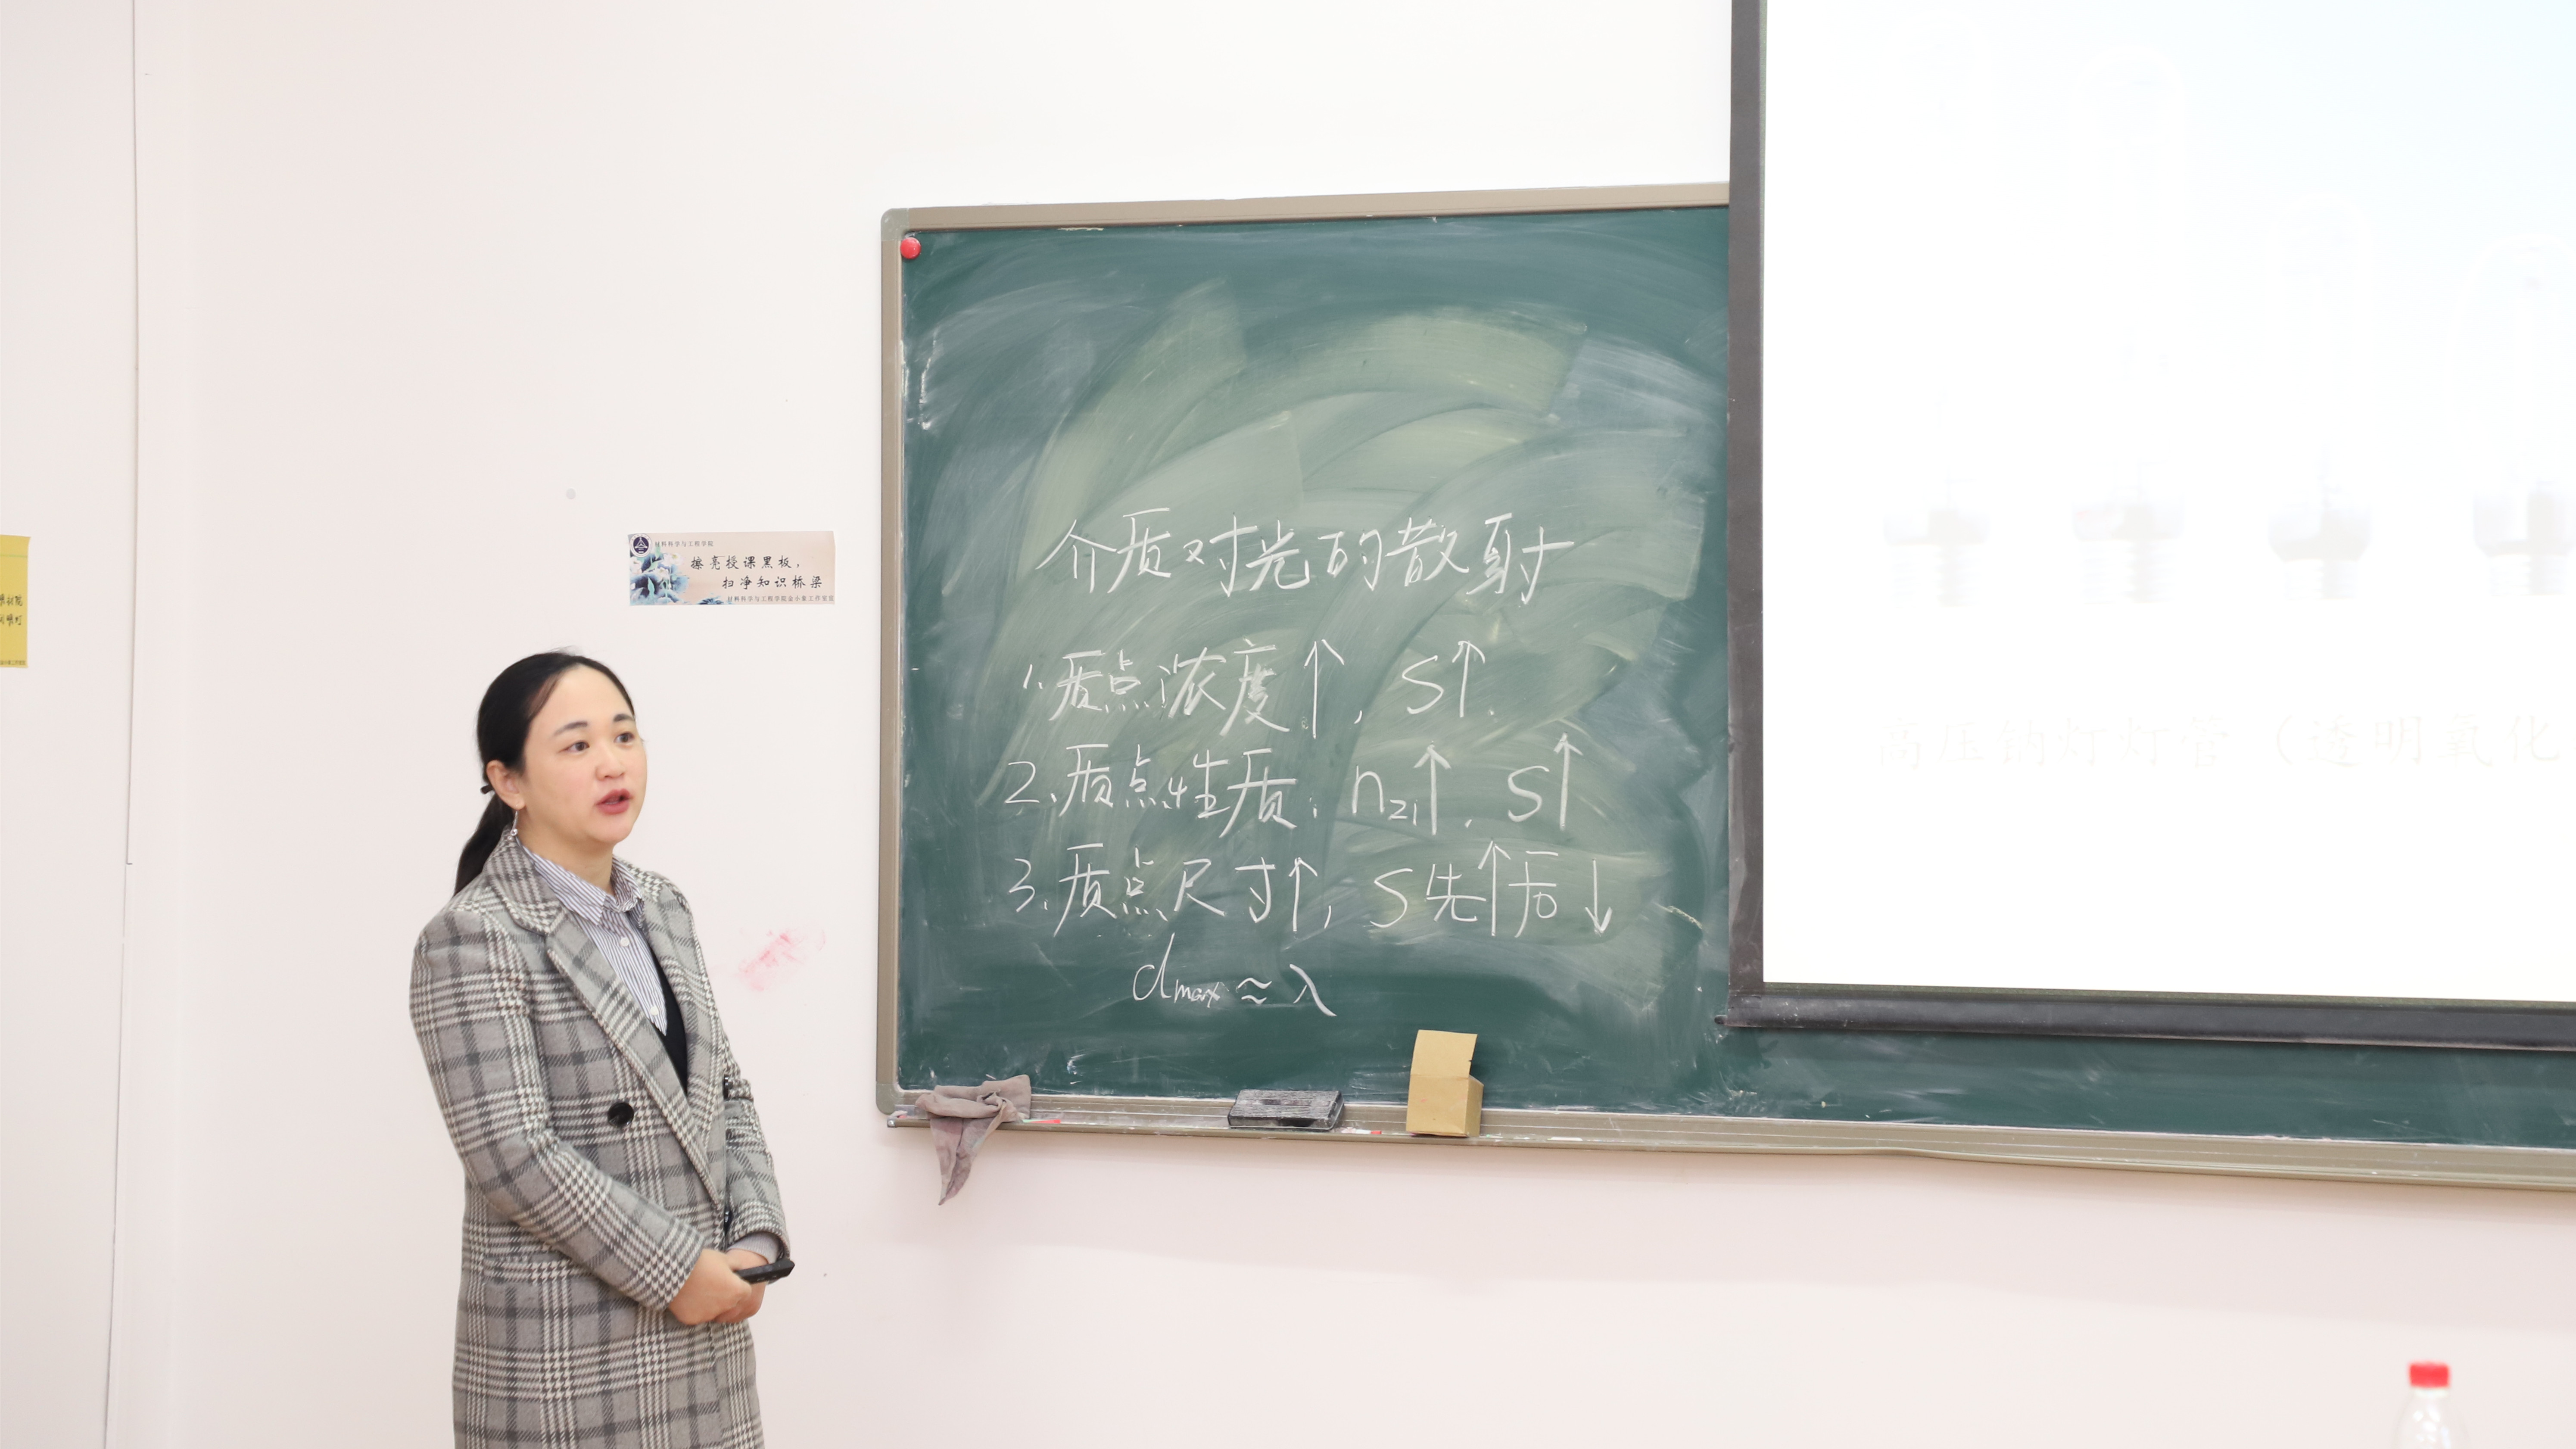 材料科学与工程学院
擦亮授课黑板，
扫净知识桥梁
介质对光的散射
1. 质点浓度↑, S↑.
2. 质点性质: n₂₁↑. S↑
3. 质点尺寸↑, S先↑后↓
dmax ≈ λ
高压钠灯灯管（透明氧化